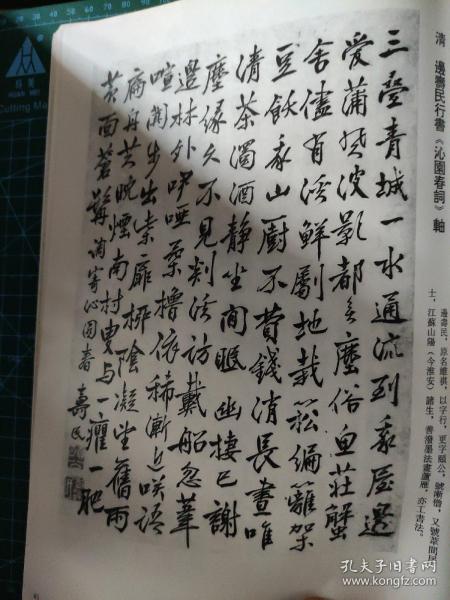 清 邊壽民行書《沁園春詞》軸
邊壽民，原名維祺，以字行，更字頤公，號漸僧，又號葦間居
士，江蘇山陽（今淮安）諸生，善潑墨法畫蘆雁，亦工書法。
三疊青城一水通流到我屋邊
愛蒲風波影都無塵俗魚莊蟹
舍儘有活鮮斸地栽菘編籬架
豆飫我山廚不費錢消長晝唯
清茶濁酒靜坐閒眠幽棲已謝
塵緣久不見剡溪訪戴船忽葦
邊林外咿啞柔櫓依稀漸近咲語
喧闐步出柴扉陰凝坐舊雨
再共晚煙南村叟与一癯一肥
黃面蒼髯調寄沁園春 壽民
Cutting Ma
孔夫子旧书网
book.kongfz.com